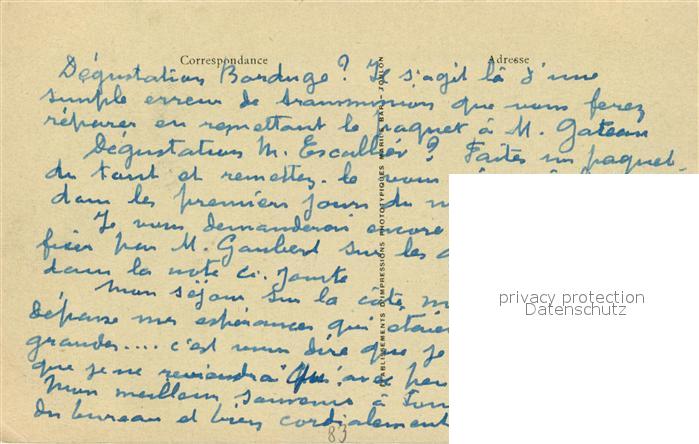 Correspondance
Adresse
Dégustation Barduge ? Il s'agit là d'une
simple erreur de transmission que vous ferez
réparer en remettant le paquet à M. Gateau
Dégustation M. Escallier ? Faites un paquet
du tout et remettez-le vous
dans les premiers jours du
Je vous demanderai encore
fixer par M. Gaubert sur les
dans la note ci-jointe
Mon séjour sur la côte
dépasse mes espérances qui étaient
grandes.... c'est vous dire que je
que je ne reviendrai qu'avec
Mon meilleur souvenir à tous
du bureau et bien cordialement
83
ETABLISSEMENTS D'IMPRESSIONS PHOTOTYPIQUES MARIUS BAR - TOULON
privacy protection
Datenschutz